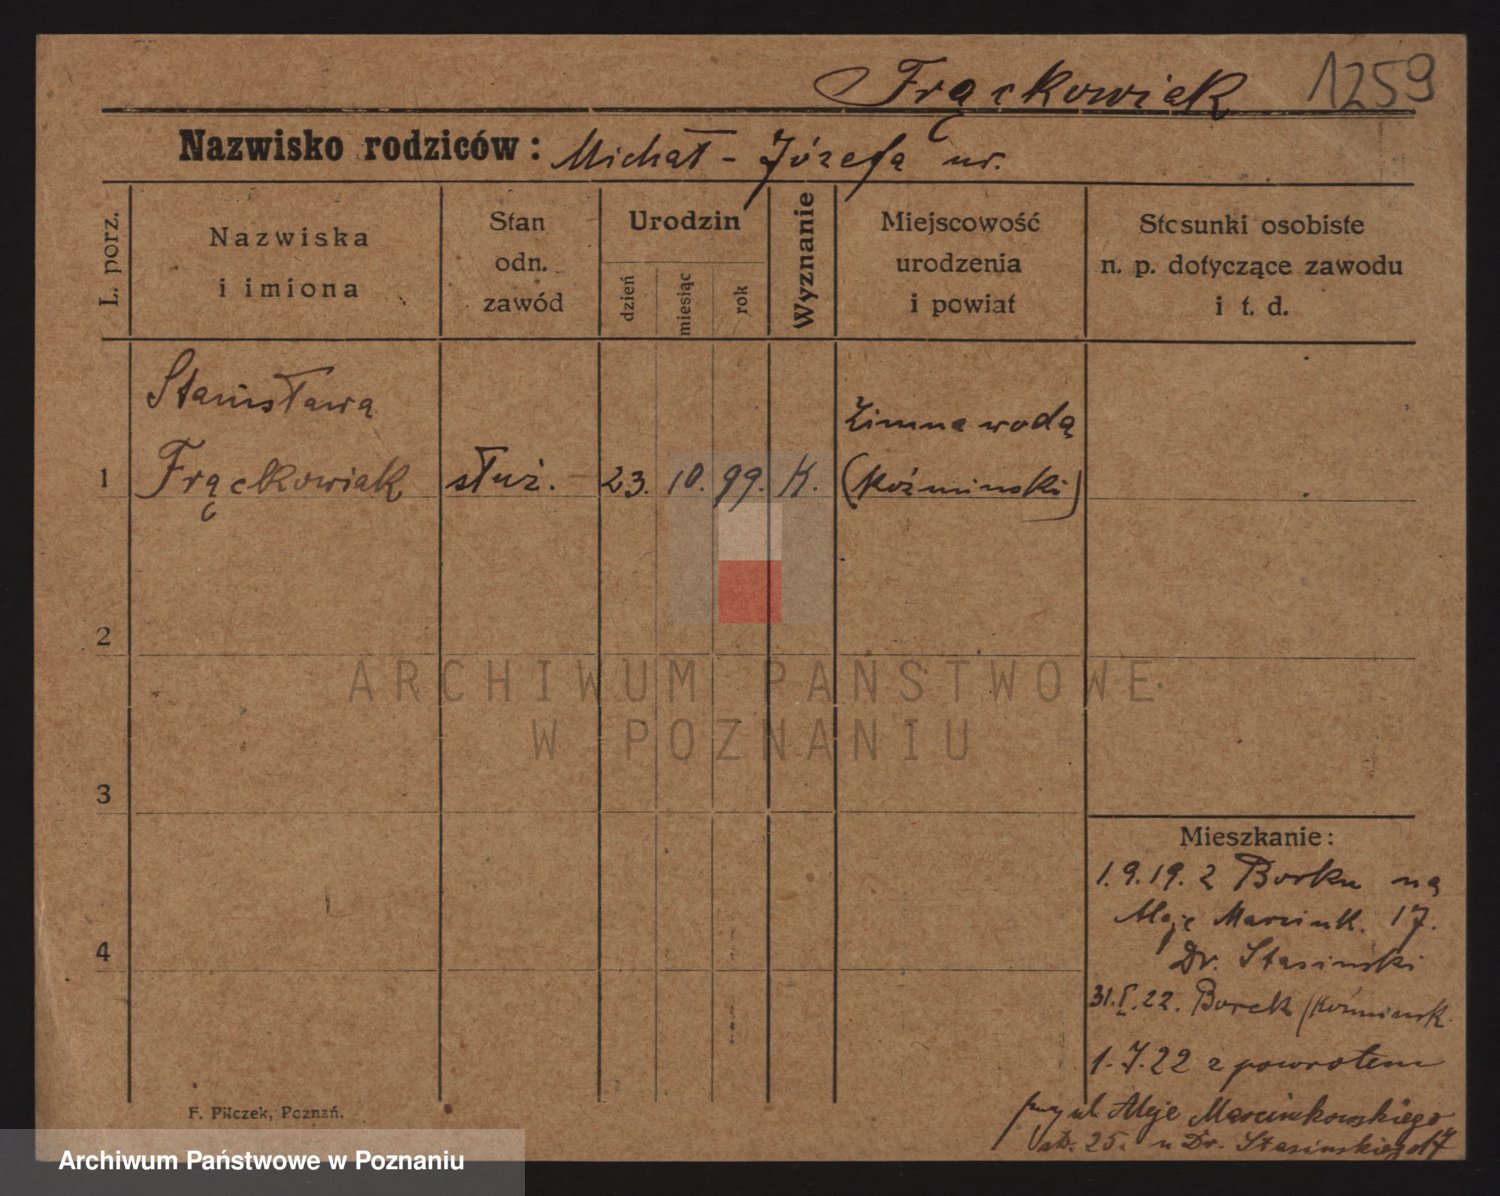 Frąckowiak 1259
Nazwisko rodziców: Michał - Józefa ur.
L. porz.
Nazwiska
i imiona
Stan
odn.
zawód
Urodzin
dzień
miesiąc
rok
Wyznanie
Miejscowość
urodzenia
i powiat
Stosunki osobiste
n. p. dotyczące zawodu
i t. d.
Stanisława
Zimna woda
1 Frąckowiak służ. 23. 10. 99. K. (Koźminski)
2
ARCHIWUM PAŃSTWOWE
W POZNANIU
3
Mieszkanie:
1.9.19. z Borku na
Aleje Marcink. 17.
4
Dr. Stasinski
31.I.22. Borek (Koźminsk.
1.7.22 z powrotem
Aleje Marcinkowskiego
25. u Dr. Stasinskiego
F. Pilczek, Poznań.
Archiwum Państwowe w Poznaniu